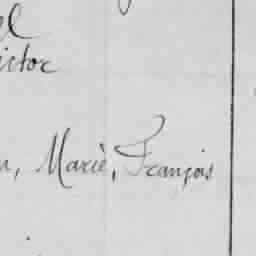 el
ictor
n, Marie, François